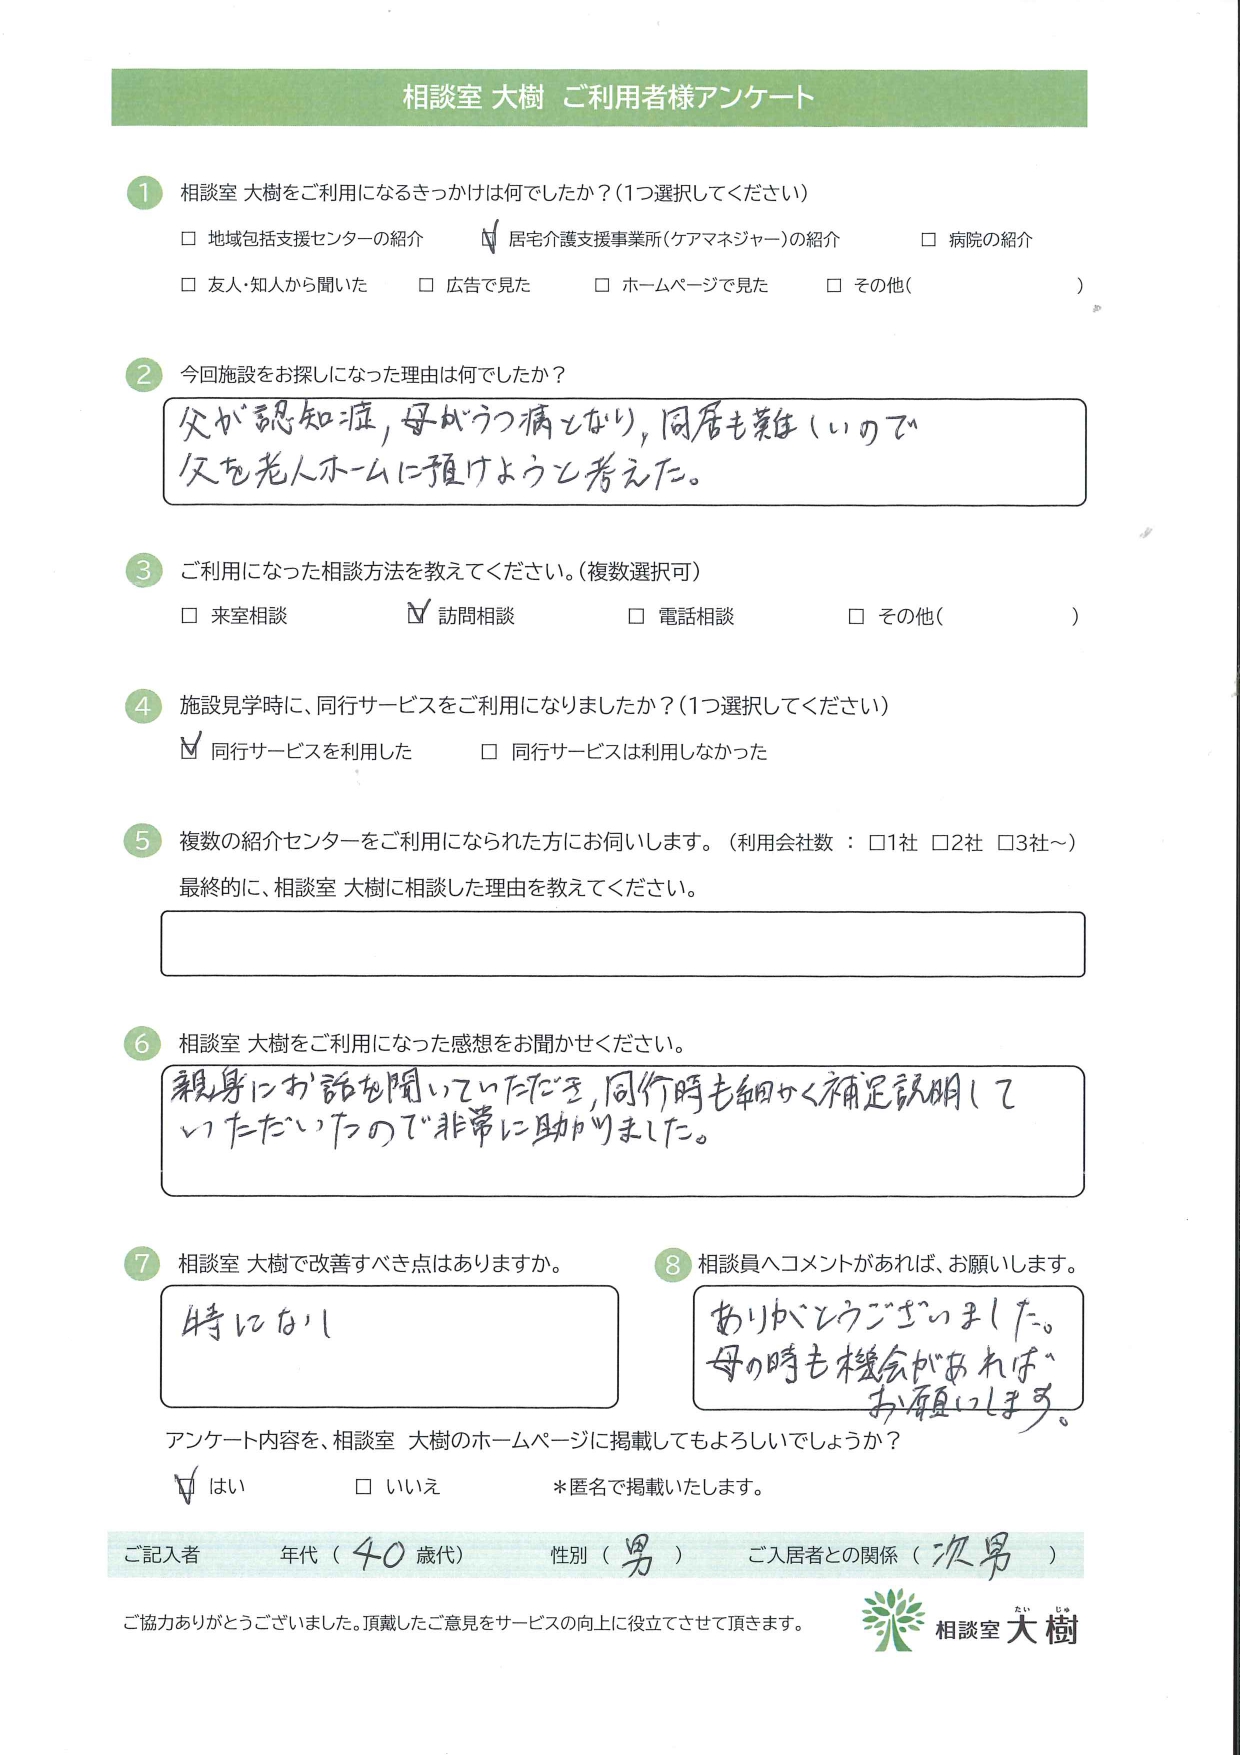 相談室 大樹 ご利用者様アンケート
1 相談室 大樹をご利用になるきっかけは何でしたか？(1つ選択してください)
□ 地域包括支援センターの紹介 ☑ 居宅介護支援事業所(ケアマネジャー)の紹介 □ 病院の紹介
□ 友人・知人から聞いた □ 広告で見た □ ホームページで見た □ その他( )
2 今回施設をお探しになった理由は何でしたか？
父が認知症,母がうつ病となり,同居も難しいので
父を老人ホームに預けようと考えた。
3 ご利用になった相談方法を教えてください。(複数選択可)
□ 来室相談 ☑ 訪問相談 □ 電話相談 □ その他( )
4 施設見学時に、同行サービスをご利用になりましたか？(1つ選択してください)
☑ 同行サービスを利用した □ 同行サービスは利用しなかった
5 複数の紹介センターをご利用になられた方にお伺いします。(利用会社数 ： □1社 □2社 □3社～)
最終的に、相談室 大樹に相談した理由を教えてください。
6 相談室 大樹をご利用になった感想をお聞かせください。
親身にお話を聞いていただき,同行時も細かく補足説明して
いただいたので非常に助かりました。
7 相談室 大樹で改善すべき点はありますか。
時になし
8 相談員へコメントがあれば、お願いします。
ありがとうございました。
母の時も機会があれば
お願いします。
アンケート内容を、相談室 大樹のホームページに掲載してもよろしいでしょうか？
☑ はい □ いいえ ＊匿名で掲載いたします。
ご記入者 年代 ( 40 歳代) 性別 ( 男 ) ご入居者との関係 ( 次男 )
ご協力ありがとうございました。頂戴したご意見をサービスの向上に役立てさせて頂きます。
たい じゅ
相談室 大樹